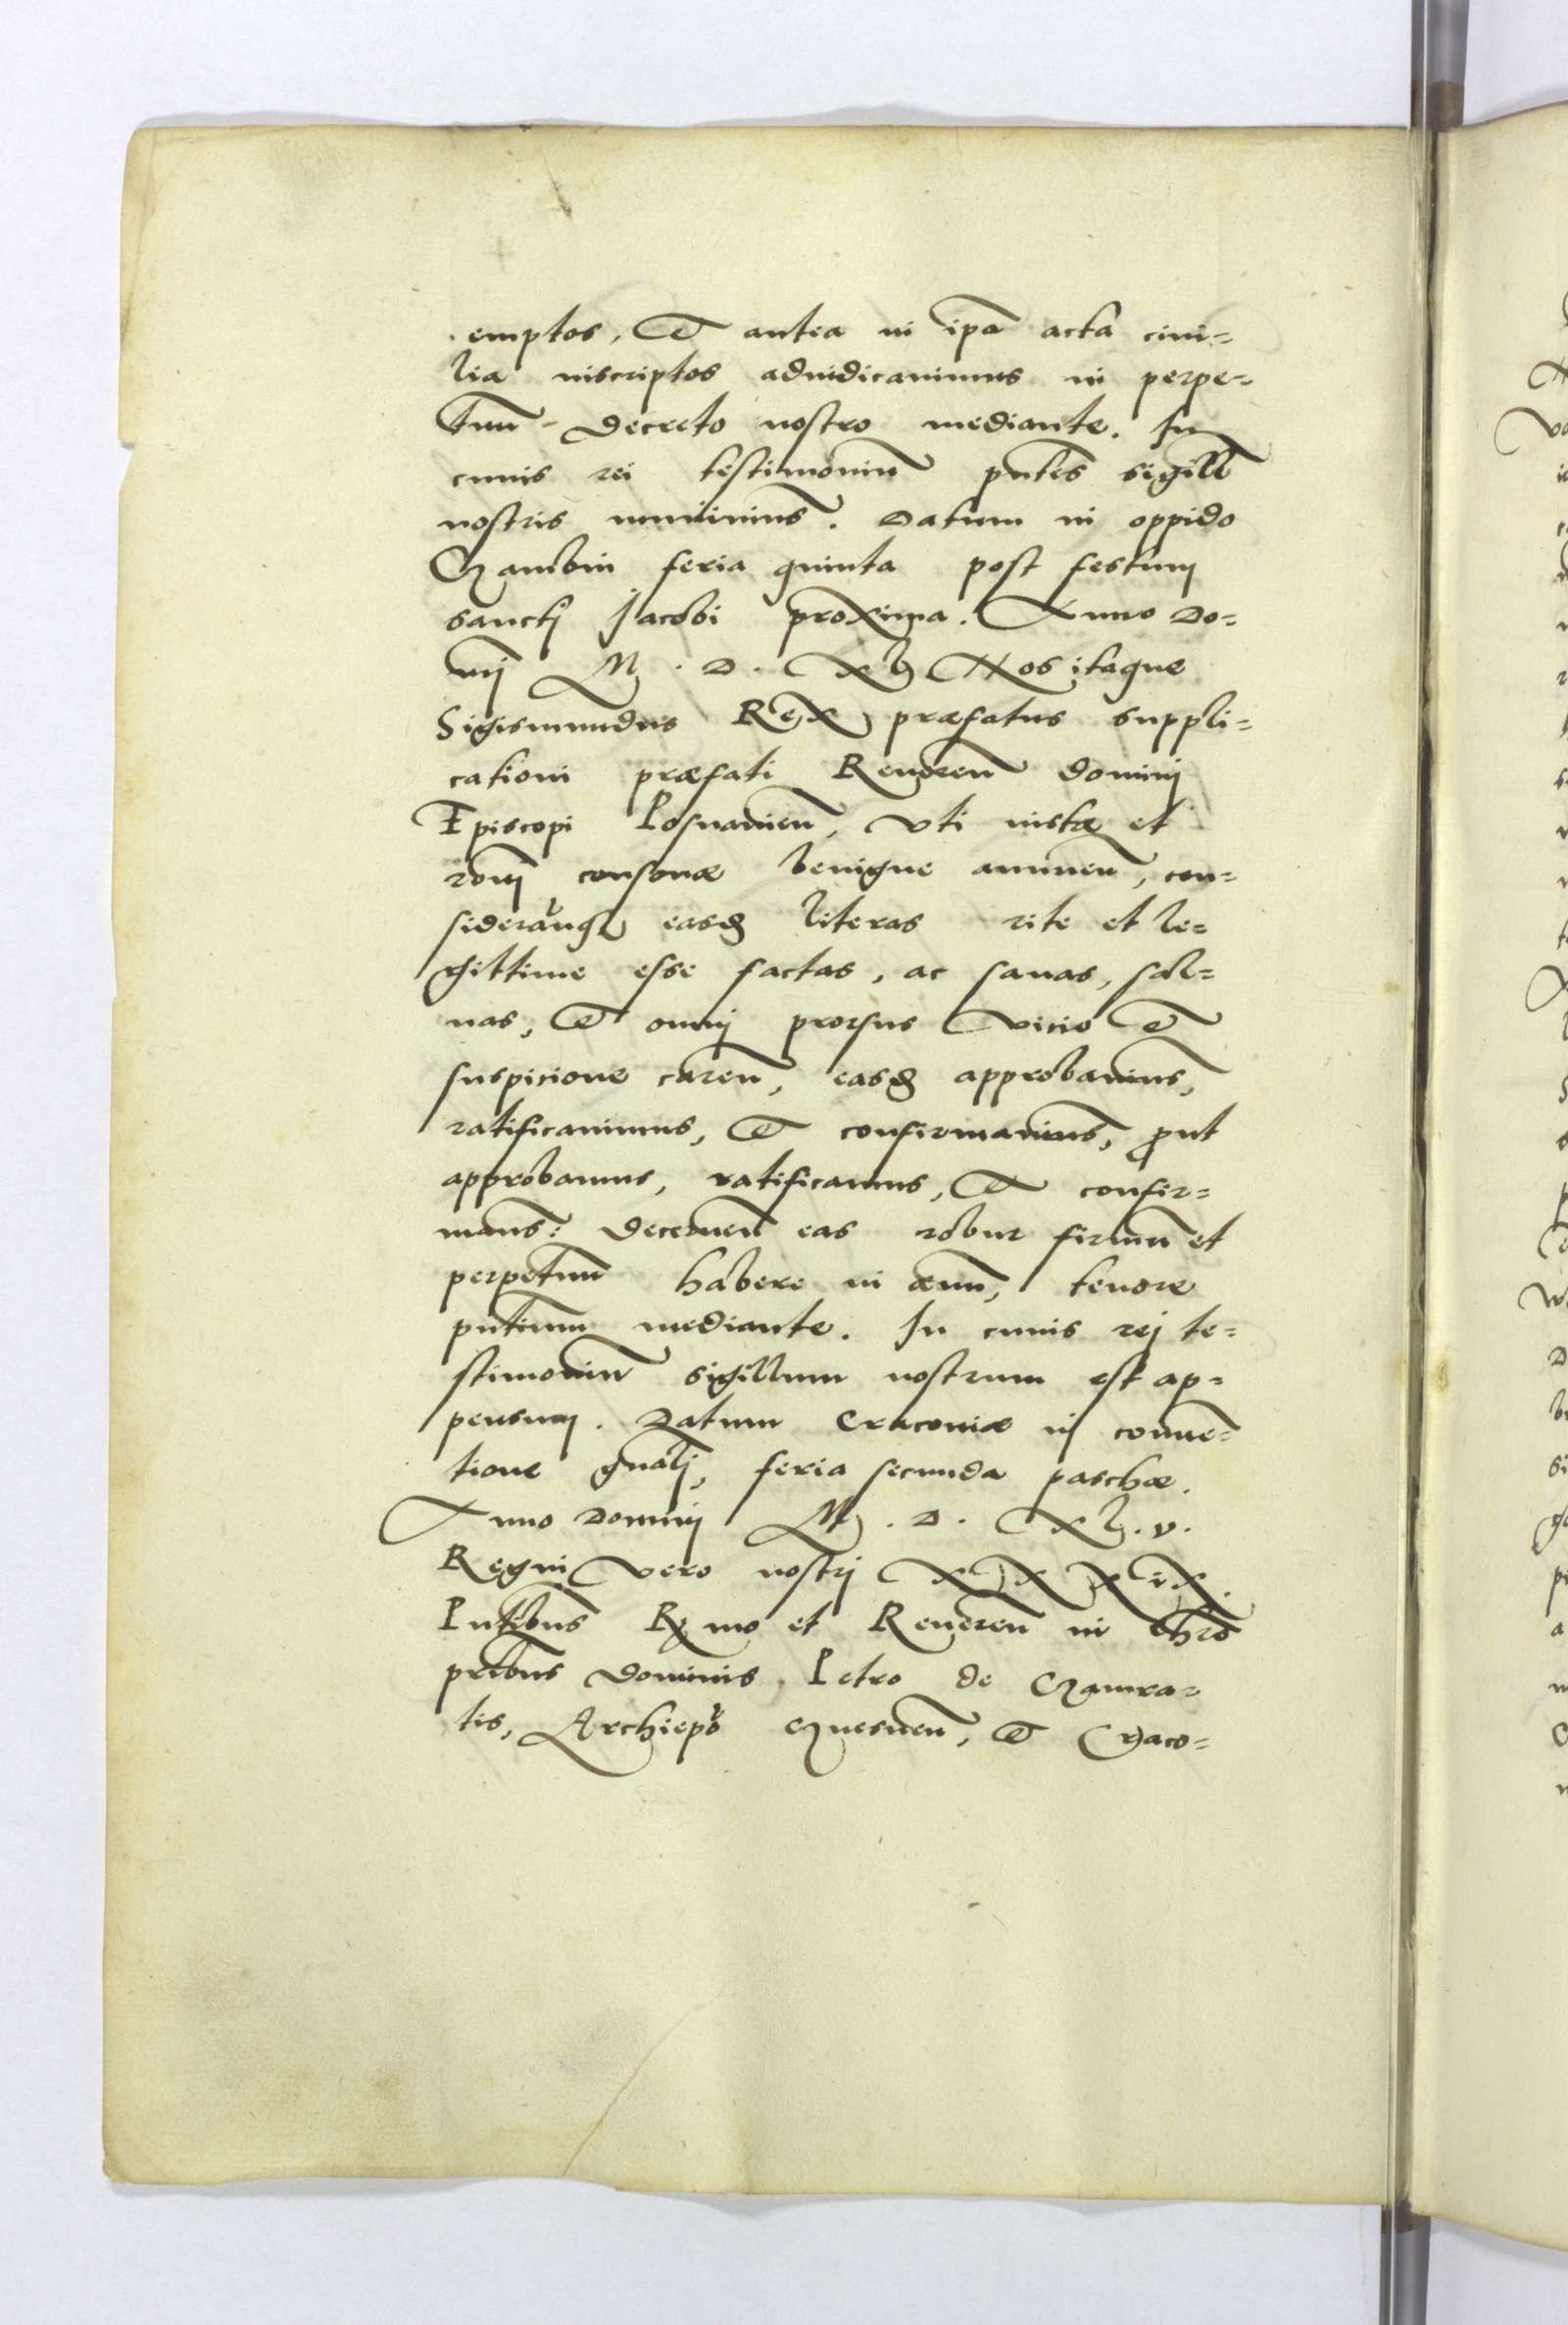 emptos, et antea in ip̃a acta ciui=
lia inscriptos adiudicauimus in perpe=
tuũ decreto nostro mediante. In
cuius rei testimoniũ pñtes sigill̃
nostris muniuimus̃. Datum in oppido
Czarnbin feria quinta post festum
sanctj Jacobi proxima. Anno Do=
mĩj M. D. XL Nos itaque
Sigismundus Rex præfatus suppli=
cationi præfati Reueren̄ dominj
Episcopi Posnanien̄, vti iustæ et
rõnj consonæ benigne annuen̄, con=
siderañtq3 easd3 literas rite et le=
gittime esse factas, ac sanas, sal=
uas, et omnj prorsus vicio et
suspicione caren̄, easd3 approbauimus̃,
ratificauimus, et confirmauimus̃, ꝓut
approbamus, ratificamus, et confir=
mam̃s: decernen̄ eas robur firmũ et
perpetuũ habere in æuũ, tenore
pñtium mediante. In cuius rej te=
stimoniũ sigillum nostrum est ap=
pensum. Datum Cracouiæ in conuẽ=
tione gñalj, feria secunda paschæ.
Anno Dominj M. D. XL. v.
Regni vero nostrj XXXIX.
Pñtibus̃ R̃mo et Reueren̄ in Chr̃o
prĩbus dominis, Petro de Gamra=
tis, Archiep̃o Gnesnen̄, et Craco=